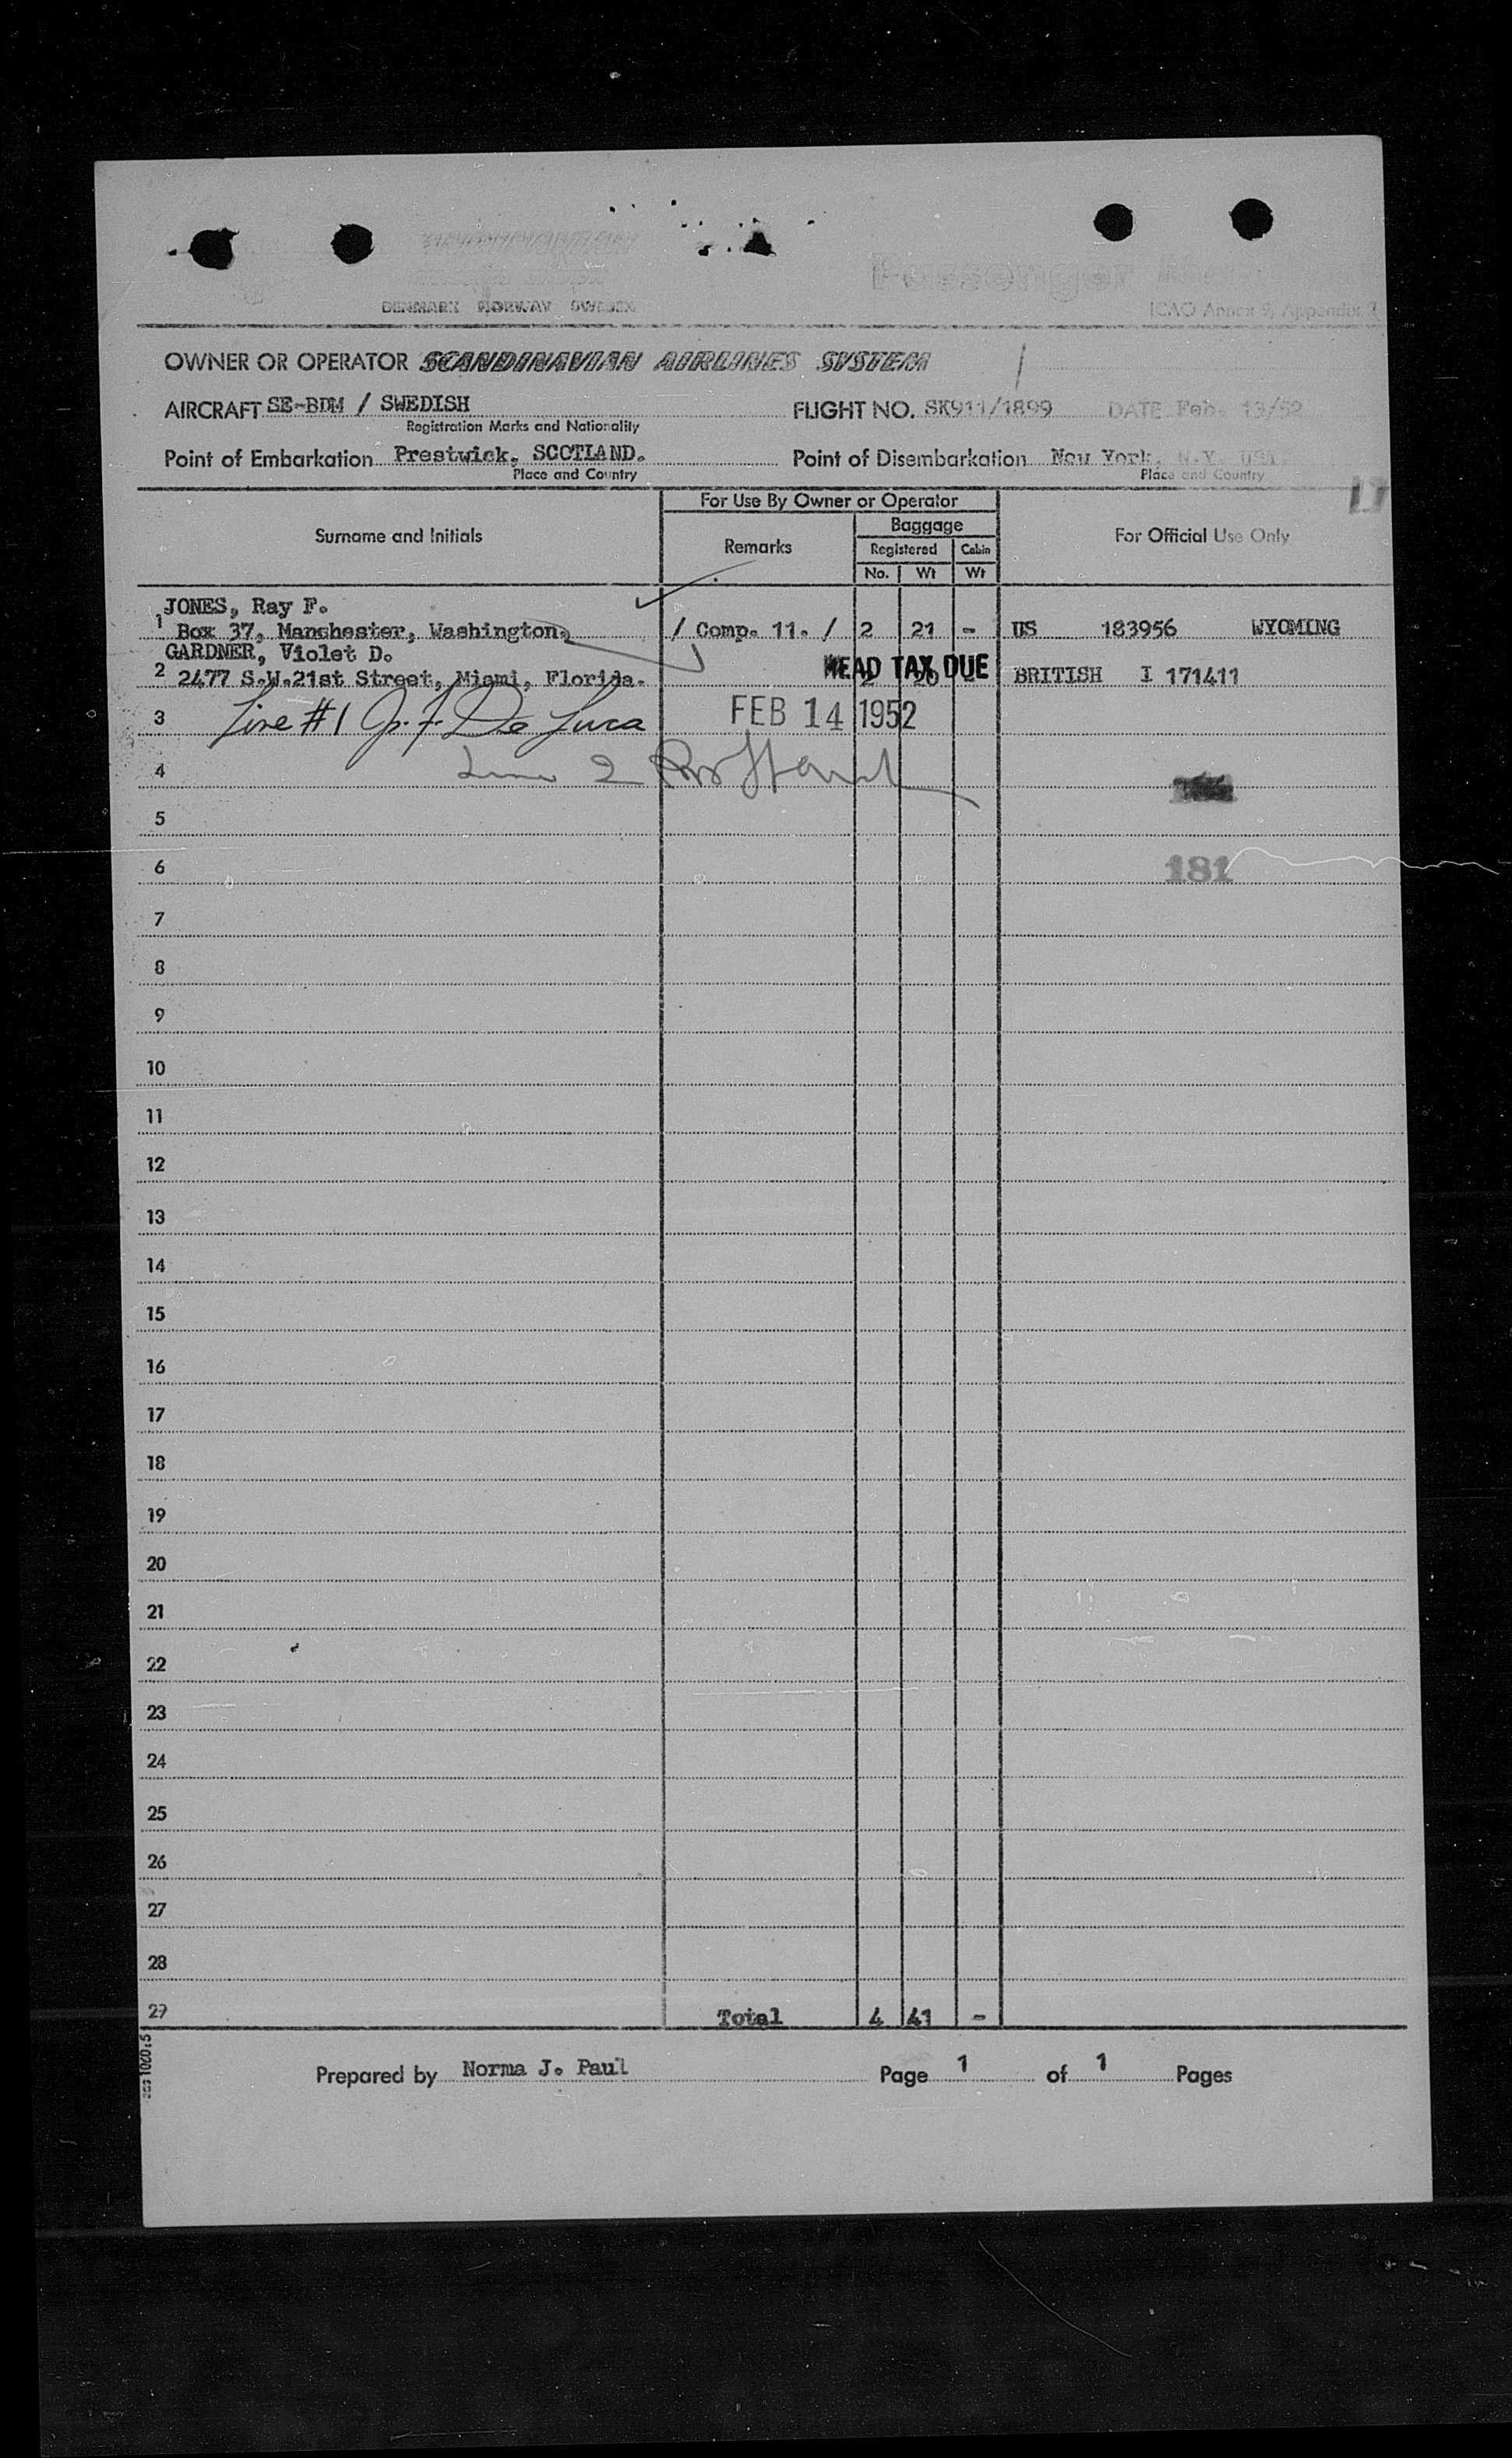 Passenger
DENMARK NORWAY SWEDEN
ICAO Annex 9, Appendix
OWNER OR OPERATOR SCANDINAVIAN AIRLINES SYSTEM
AIRCRAFT SE-BDM / SWEDISH FLIGHT NO. SK911/1899 DATE Feb. 13/52
Registration Marks and Nationality
Point of Embarkation Prestwick, SCOTLAND. Point of Disembarkation New York, N.Y. USA
Place and Country Place and Country
For Use By Owner or Operator
Surname and Initials Remarks Baggage For Official Use Only
Registered Cabin
No. Wt Wt
JONES, Ray F.
1 Box 37, Manchester, Washington. / Comp. 11. / 2 21 - US 183956 WYOMING
GARDNER, Violet D.
2 2477 S.W.21st Street, Miami, Florida. 2 20 - BRITISH I 171411
HEAD TAX DUE
3 Line #1 J. F. De Luca FEB 14 1952
4 Line 2
5
6 181
7
8
9
10
11
12
13
14
15
16
17
18
19
20
21
22
23
24
25
26
27
28
29 Total 4 41 -
Prepared by Norma J. Paul Page 1 of 1 Pages